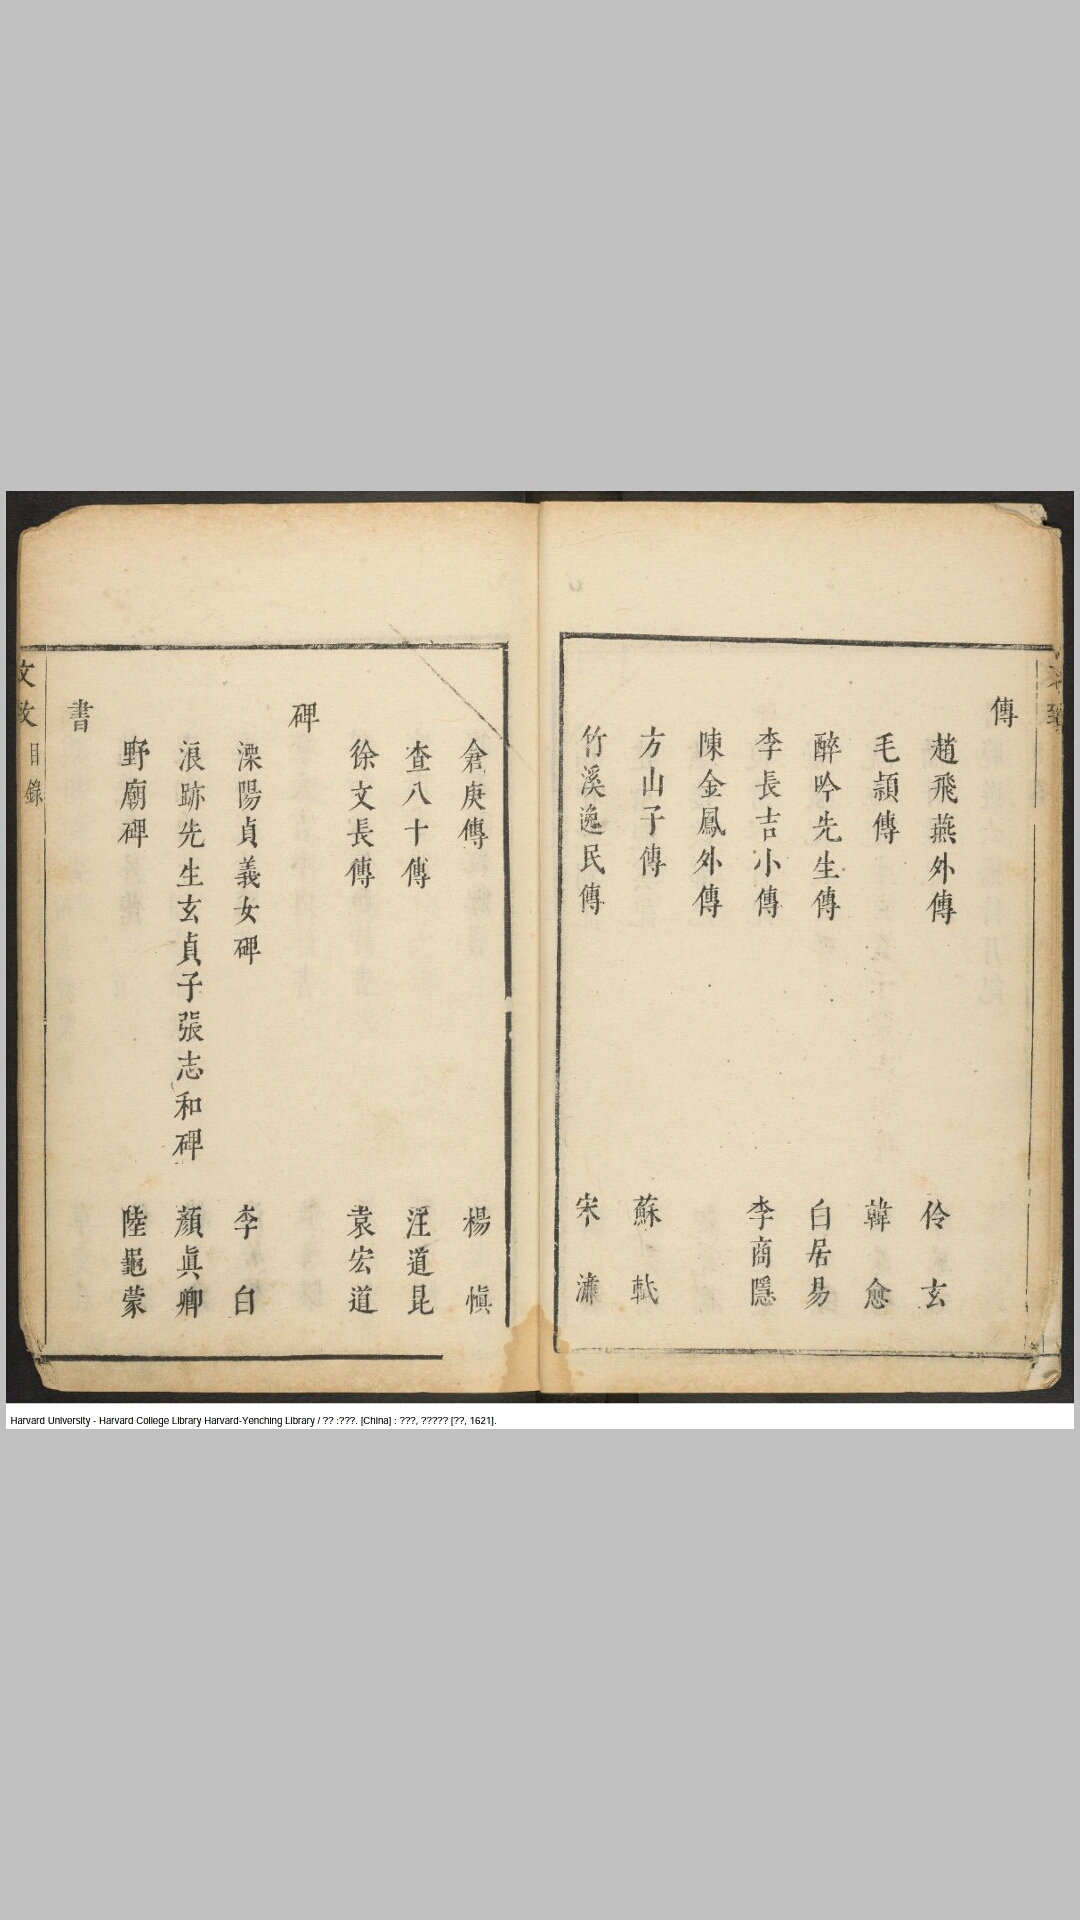 傳
趙飛燕外傳 伶玄
毛頴傳 韓愈
醉吟先生傳 白居易
李長吉小傳 李商隱
陳金鳳外傳
方山子傳 蘇軾
竹溪逸民傳 宋濂
倉庚傳 楊慎
查八十傳 汪道昆
徐文長傳 袁宏道
碑
溧陽貞義女碑 李白
浪跡先生玄貞子張志和碑 顏眞卿
野廟碑 陸龜蒙
書
文致 目錄
Harvard University - Harvard College Library Harvard-Yenching Library / ?? :???. [China] : ???, ????? [??, 1621].